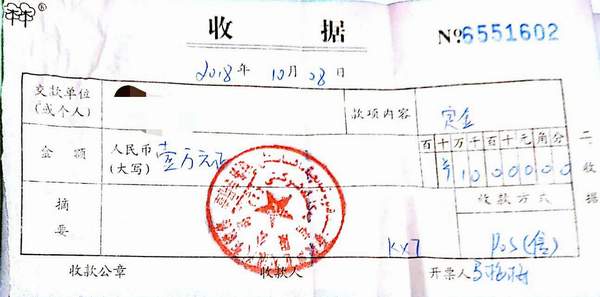 收 据 №6551602
2018年10月08日
交款单位
(或个人)
款项内容 定金
金 额 人民币
(大写) 壹万元正
百十万千百十元角分
¥1000000
收款方式
摘
要
KX7 POS(信)
二
收
据
收款公章 收款人 开票人